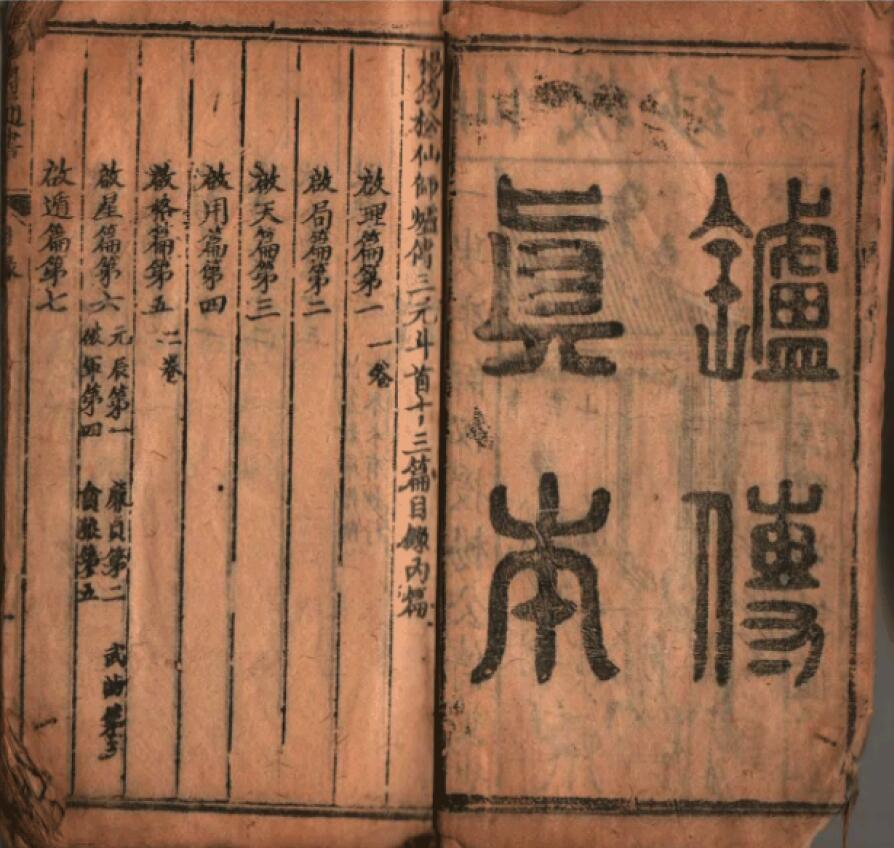 鑪傳
眞本
楊筠松仙師爐傳三元斗首十三篇目錄丙編
啟理篇第一 一卷
啟局篇第二
啟天篇第三
啟用篇第四
啟格篇第五 二卷
啟星篇第六 元辰第一 廉貞第二 武曲第三
破軍第四 貪狼第五
啟遁篇第七